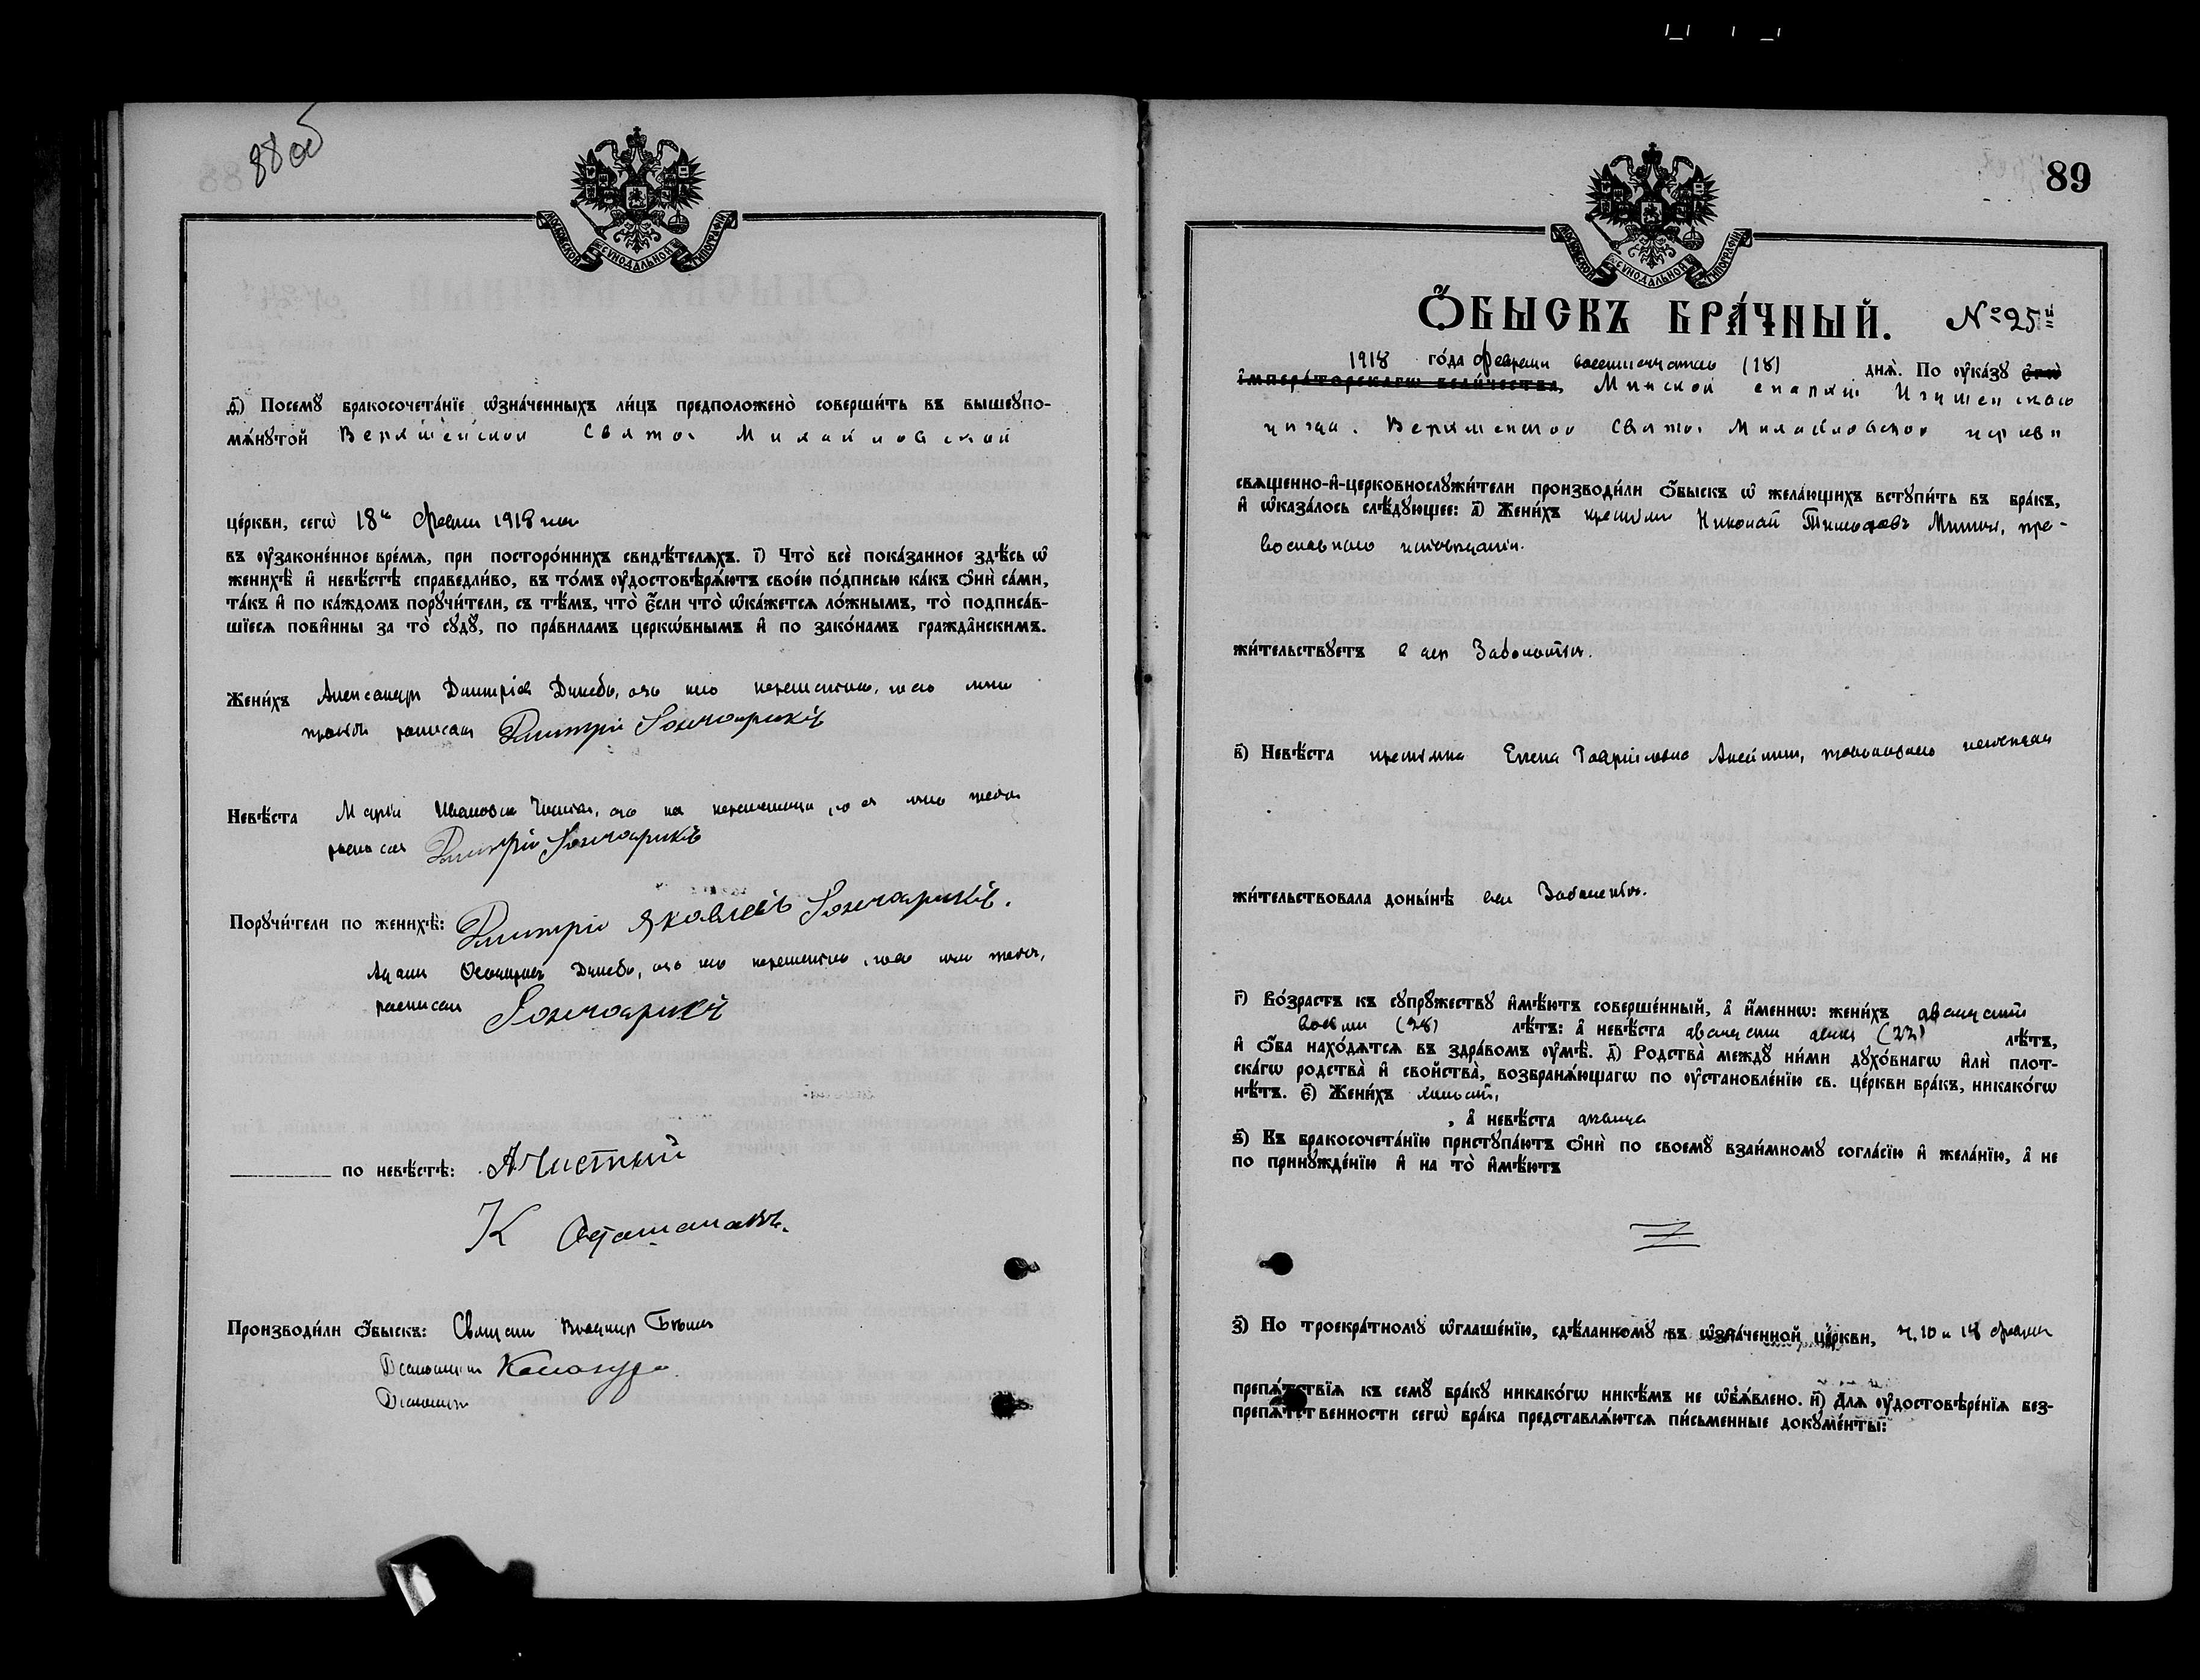 88 об
МОСКОВСКОЙ СѴНОДАЛЬНОЙ ТИПОГРАФІИ
ѳ҃) Посемꙋ̀ бракосочета́нїе ѡзна́ченныхъ ли́цъ предположено̀ соверши́ть въ вышеꙋпо-
мѧ́нꙋтой Верхменской Свято Михайловской
це́ркви, сегѡ̀ 18 февраля 1918 года
въ ᲂу҆законе́нное вре́мѧ, при посторо́ннихъ свидѣ́телѧхъ. і҃) Что̀ всѐ пока́занное здѣ́сь ѡ҆
женихѣ̀ и҆ невѣ́стѣ справедли́во, въ то́мъ ᲂу҆достовѣрѧ́ютъ свое́ю по́дписью ка́къ ѻ҆нѝ са́ми,
та́къ и҆ по ка́ждомъ порꙋчи́тели, съ тѣ́мъ, что̀ є҆́сли что̀ ѡ҆ка́жетсѧ ло́жнымъ, то̀ подписа́в-
шїесѧ пови́нны за то̀ сꙋдꙋ̀, по пра́виламъ церко́внымъ и҆ по зако́намъ гражда́нскимъ.
Жени́хъ Александръ Димитріев Дулебо, а за него неграмотнаго, по его личной
просьбе расписался Дмитрій Гончарикъ
Невѣ́ста Марія Ивановна
расписался Дмитрій Гончарикъ
Порꙋчи́тели по женихѣ̀: Дмитрій Яковлевъ Гончарикъ.
Адам Дулебо, а за него неграмотнаго, по его
расписался Гончарикъ
по невѣ́стѣ: А Чистый
К
Производи́ли ѻ҆́быскъ: Священник Владимир
Псаломщик
Псаломщик
89
МОСКОВСКОЙ СѴНОДАЛЬНОЙ ТИПОГРАФІИ
Ѻ҆БЫСКЪ БРА́ЧНЫЙ. № 25й
1918 го́да февраля восемнадцатаго (18) днѧ̀. По ᲂу҆ка́зꙋ є҆гѡ̀
і҆мпера́торскагѡ вели́чества, Минской епархіи Игуменскаго
уезда. Верхменской Свято Михайловской церкви
свѧще́нно-и҆-церковнослꙋжи́тели производи́ли ѻ҆́быскъ ѡ҆ жела́ющихъ встꙋпи́ть въ бра́къ,
и҆ ѡ҆каза́лось слѣ́дꙋющее: а҃) Жени́хъ крестьянин Николай Тимофеевъ пра-
вославнаго исповедания.
жи́тельствꙋетъ в дер Заболотье.
в҃) Невѣ́ста крестьянка Елена Гавріиловна исповедания
жи́тельствовала доны́нѣ дер Заболотье.
г҃) Во́зрастъ къ сꙋпрꙋ́жествꙋ и҆мѣ́ютъ соверше́нный, а҆ и҆́меннѡ: жени́хъ двадцати
восьми (28) лѣ́тъ: а҆ невѣ́ста двадцати двух (22) лѣ́тъ,
и҆ ѻ҆́ба нахо́дѧтсѧ въ здра́вомъ ᲂу҆мѣ̀. д҃) Родства̀ междꙋ̀ ни́ми дꙋхо́внагѡ и҆лѝ плот-
ска́гѡ родства̀ и҆ сво́йства, возбранѧ́ющагѡ по ᲂу҆становле́нїю св. це́ркви бра́къ, никако́гѡ
нѣ́тъ. є҃) Жени́хъ холост,
, а҆ невѣ́ста девица
ѕ҃) Къ бракосочета́нїю пристꙋпа́ютъ ѻ҆нѝ по своемꙋ̀ взаи́мномꙋ согла́сїю и҆ жела́нїю, а҆ не
по принꙋжде́нїю и҆ на то̀ и҆мѣ́ютъ
з҃) По троекра́тномꙋ ѡ҆глаше́нїю, сдѣ́ланномꙋ въ ѡ҆зна́ченной це́ркви, 4, 10 и 18 февраля
препѧ́тствїѧ къ семꙋ̀ бра́кꙋ никако́гѡ никѣ́мъ не ѡ҆б̾ѧ́влено. и҃) Длѧ̀ ᲂу҆достовѣре́нїѧ без-
препѧ́тственности сегѡ̀ бра́ка представлѧ́ютсѧ пи́сьменные докꙋме́нты: